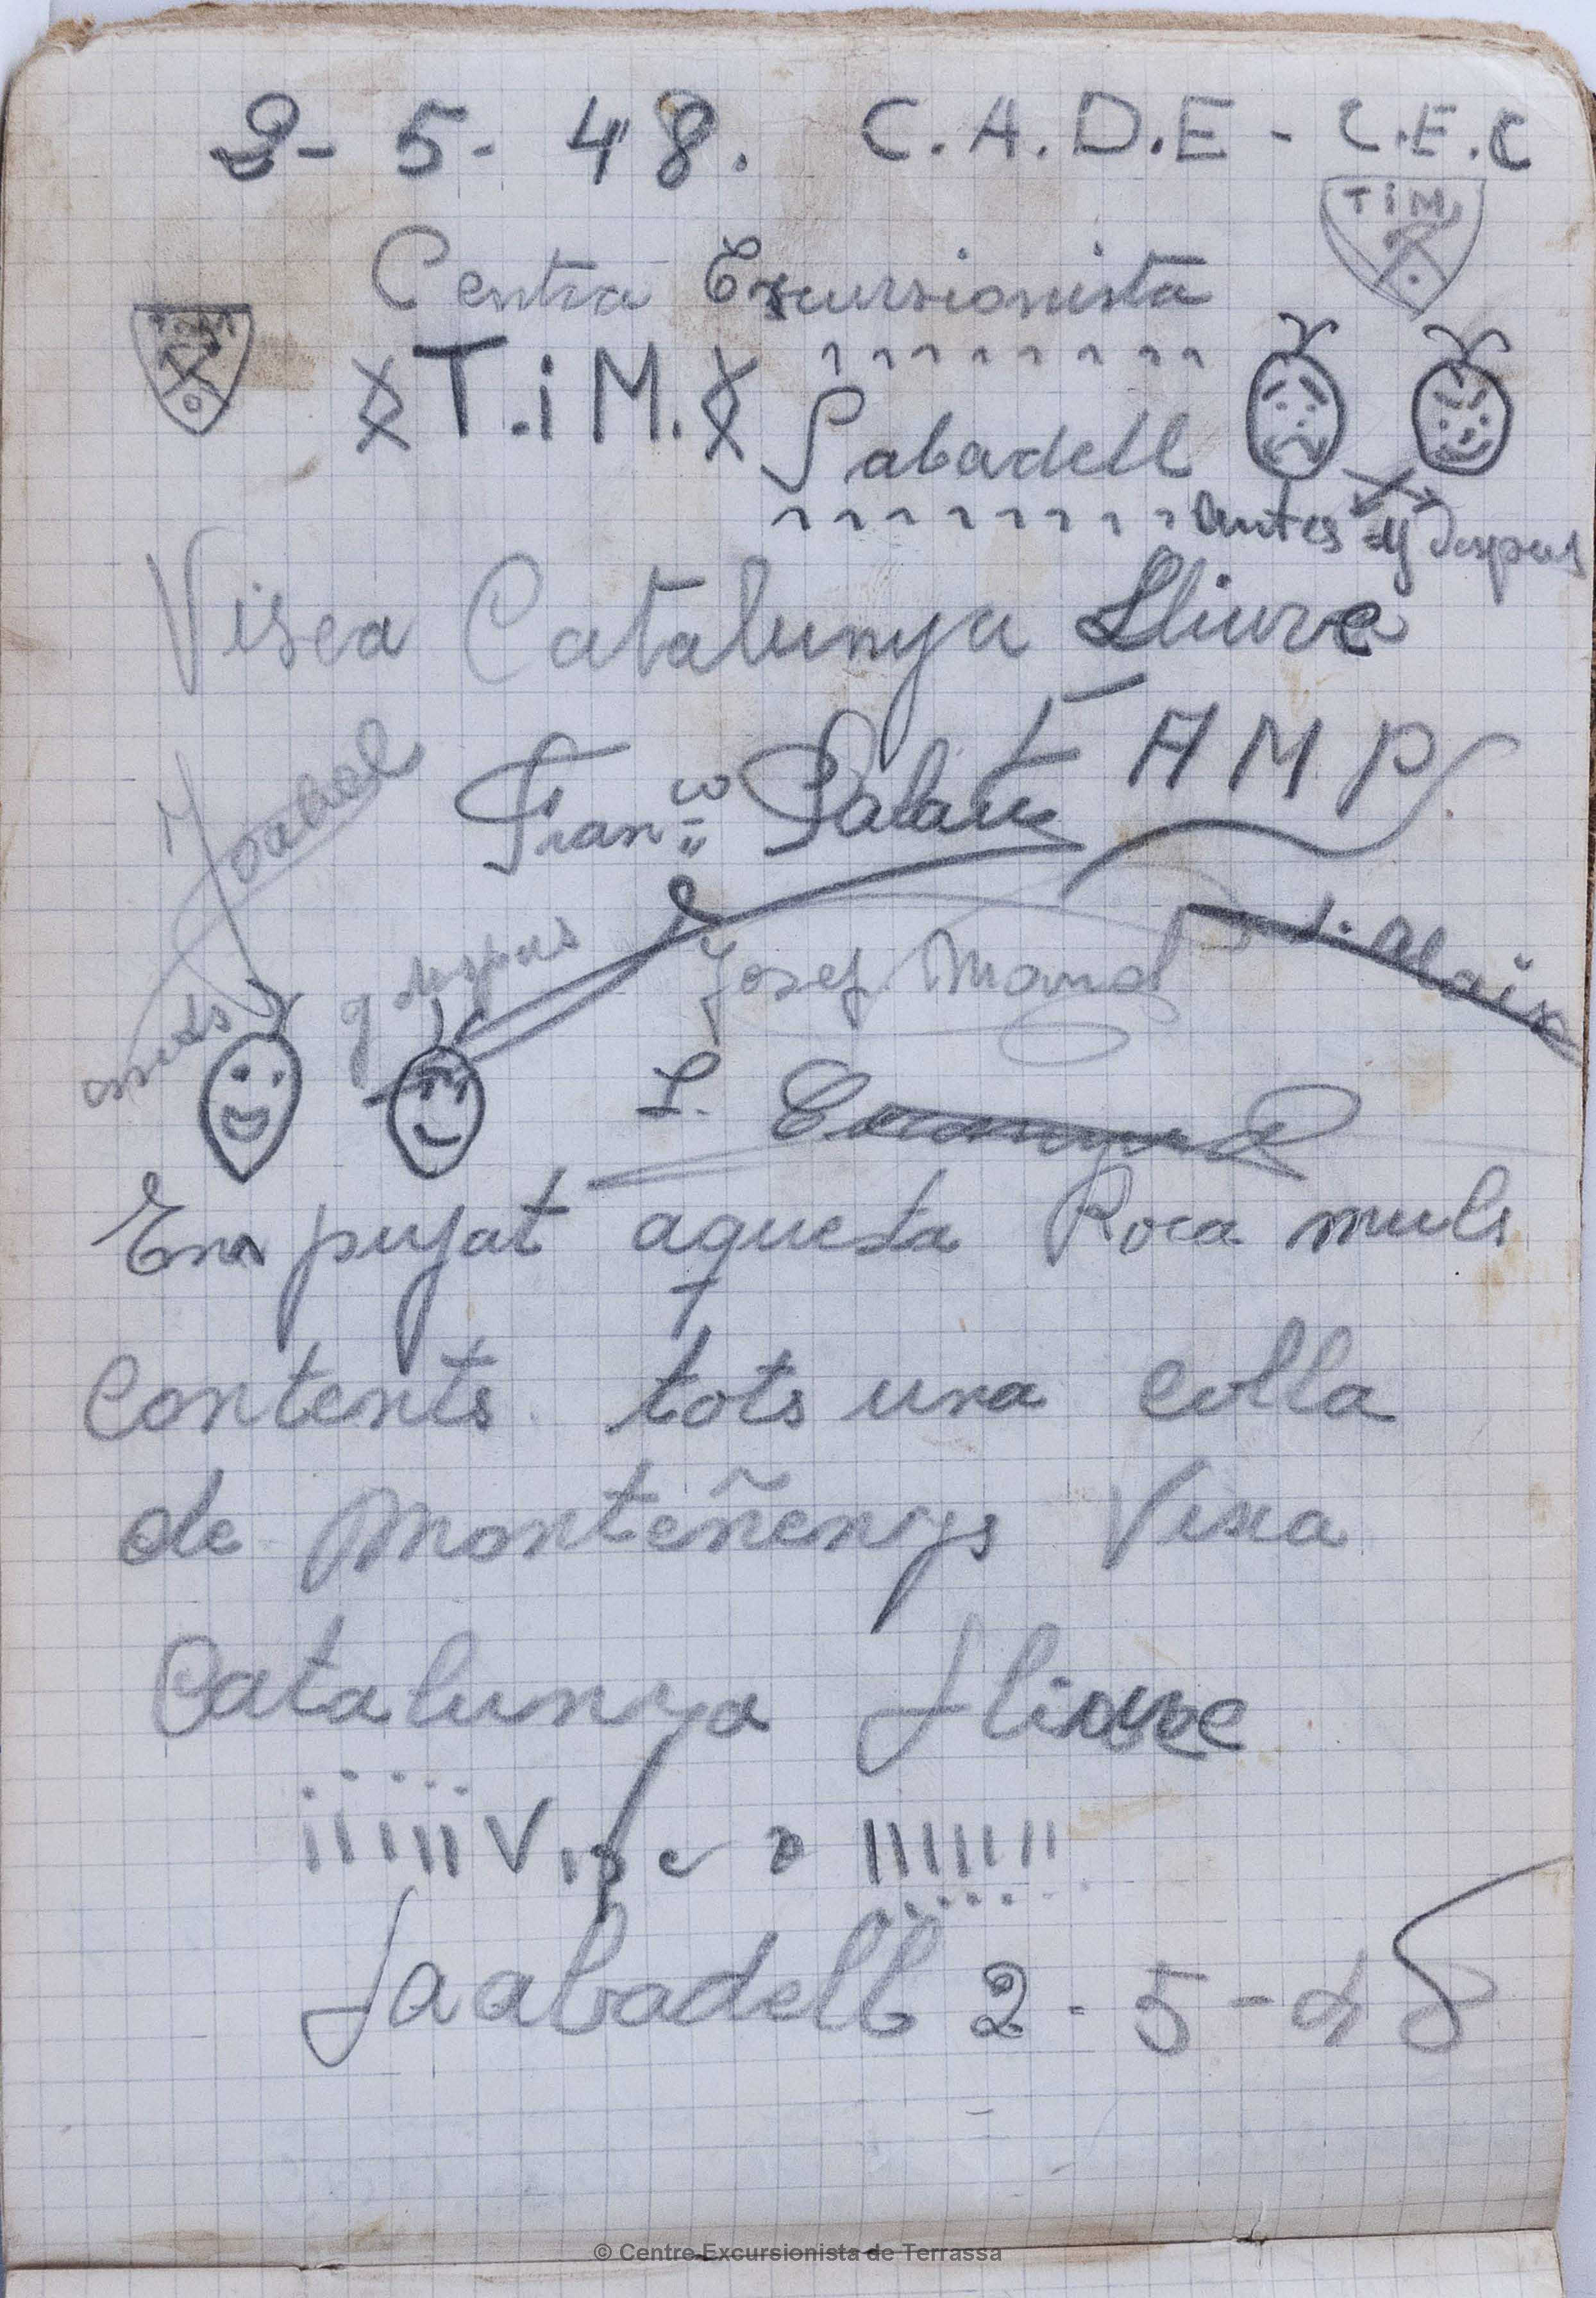 2-5-48. C.A.D.E - C.E.C
TiM
Centra Excursionista
T.i M.
Sabadell
antes y despues
Visca Catalunya Lliure
Fran.co Palau
LAMP
J.
Josef
J. Alaix
y despues
S.
Em pujat aquesta Roca muls
Contents tots una colla
de Monteñenys Visca
Catalunya Lliure
¡¡¡¡¡¡Visca!!!!!!!!
Saabadell 2-5-48
© Centre Excursionista de Terrassa